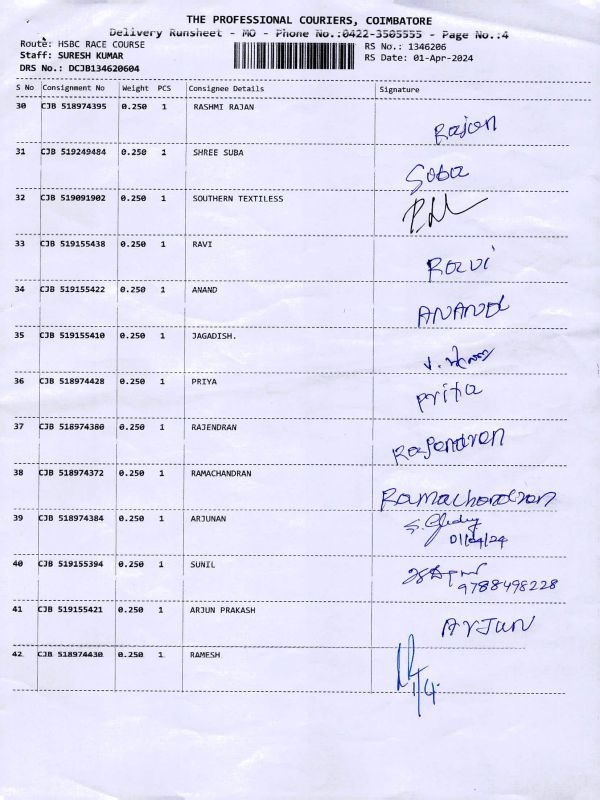 THE PROFESSIONAL COURIERS, COIMBATORE
Delivery Runsheet - MO - Phone No.:0422-3505555 - Page No.:4
Route: HSBC RACE COURSE RS No.: 1346206
Staff: SURESH KUMAR RS Date: 01-Apr-2024
DRS No.: DCJB134620604
S No Consignment No Weight PCS Consignee Details Signature
30 CJB 518974395 0.250 1 RASHMI RAJAN
Rajan
31 CJB 519249484 0.250 1 SHREE SUBA
Suba
32 CJB 519091902 0.250 1 SOUTHERN TEXTILESS
33 CJB 519155438 0.250 1 RAVI
Ravi
34 CJB 519155422 0.250 1 ANAND
ANAND
35 CJB 519155410 0.250 1 JAGADISH.
36 CJB 518974428 0.250 1 PRIYA
Priya
37 CJB 518974380 0.250 1 RAJENDRAN
Rajendran
38 CJB 518974372 0.250 1 RAMACHANDRAN
Ramachandran
39 CJB 518974384 0.250 1 ARJUNAN
01/04/24
40 CJB 519155394 0.250 1 SUNIL
9788498228
41 CJB 519155421 0.250 1 ARJUN PRAKASH
ArJUN
42 CJB 518974430 0.250 1 RAMESH
1/4.